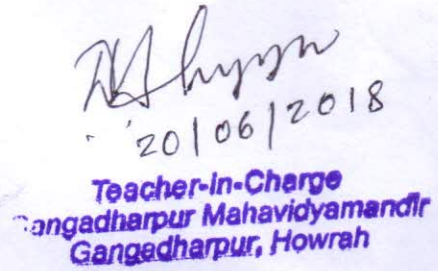 20/06/2018
Teacher-in-Charge
Gangadharpur Mahavidyamandir
Gangadharpur, Howrah